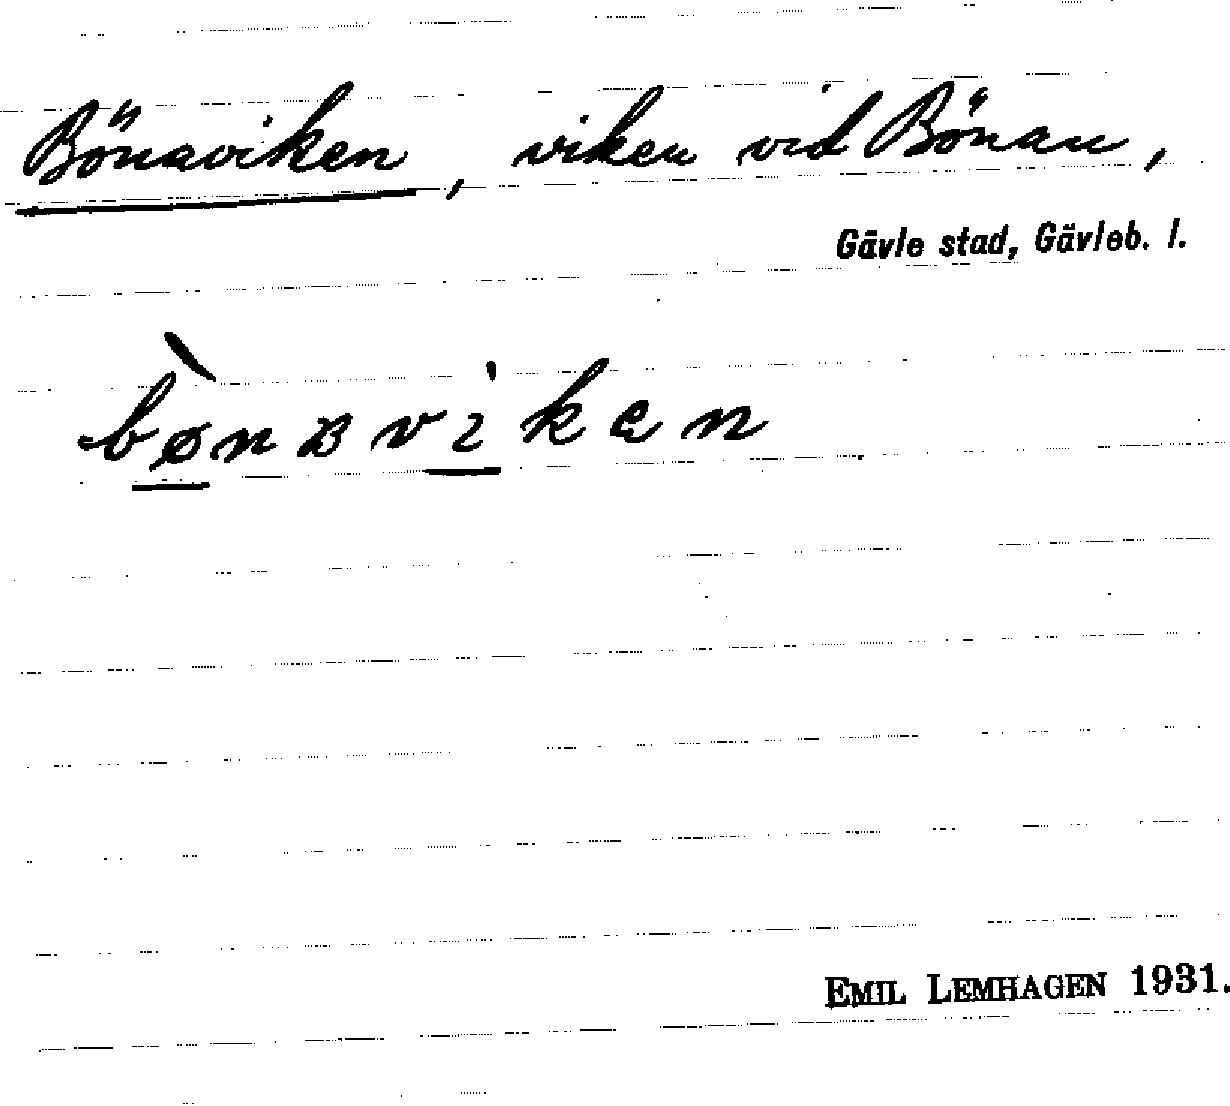 Bönaviken, viken vid Bönan,
Gävle stad, Gävleb. l.
bø̀naviken
EMIL LEMHAGEN 1931.